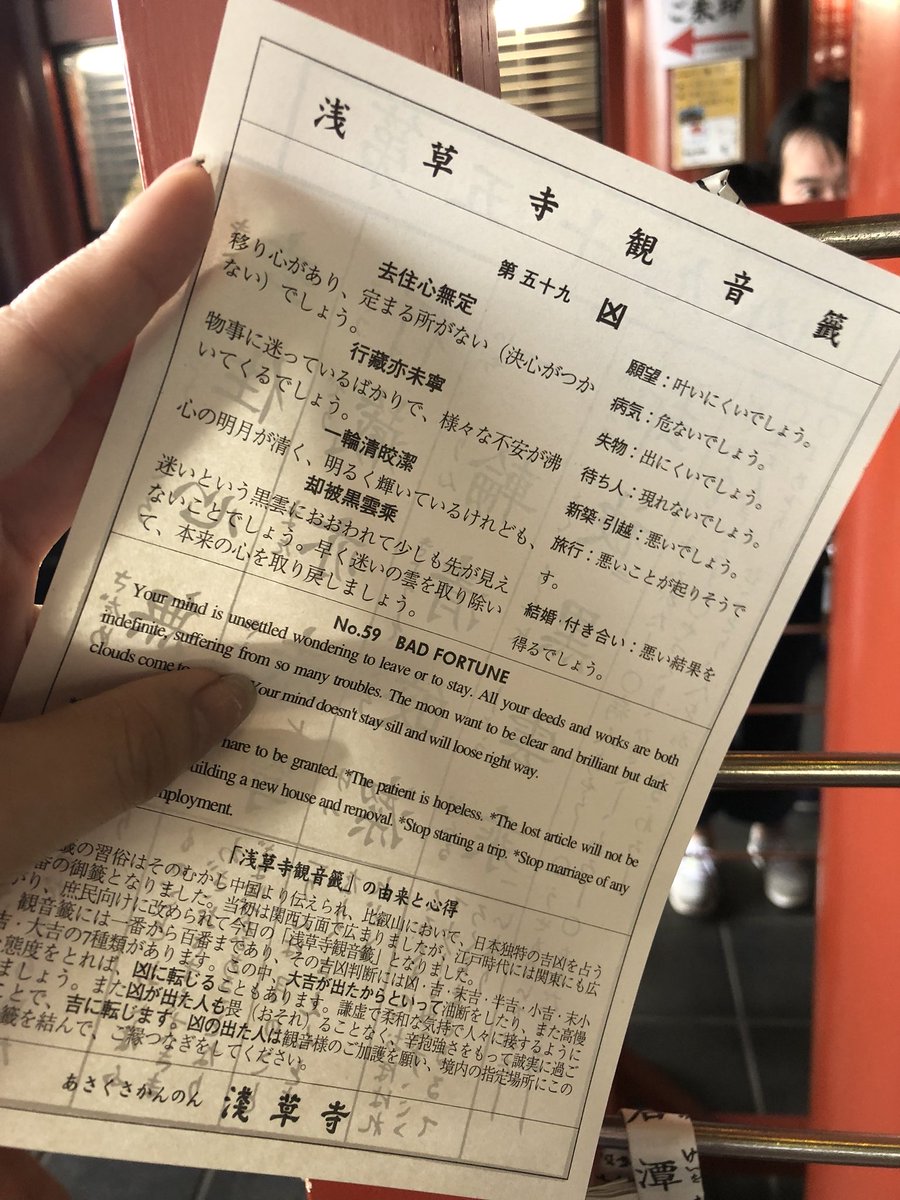 浅草寺観音籤
第五十九 凶
去住心無定
移り心があり、定まる所がない（決心がつか
ない）でしょう。
行藏亦未寧
物事に迷っているばかりで、様々な不安が沸
いてくるでしょう。
一輪清皎潔
心の明月が清く、明るく輝いているけれども、
却被黒雲乗
迷いという黒雲におおわれて少しも先が見え
ないことでしょう。早く迷いの雲を取り除い
て、本来の心を取り戻しましょう。
願望：叶いにくいでしょう。
病気：危ないでしょう。
失物：出にくいでしょう。
待ち人：現れないでしょう。
新築・引越：悪いでしょう。
旅行：悪いことが起りそうで
す。
結婚・付き合い：悪い結果を
得るでしょう。
No.59 BAD FORTUNE
Your mind is unsettled wondering to leave or to stay. All your deeds and works are both
indefinite, suffering from so many troubles. The moon want to be clear and brilliant but dark
clouds come to Your mind doesn't stay sill and will loose right way.
are to be granted. *The patient is hopeless. *The lost article will not be
building a new house and removal. *Stop starting a trip. *Stop marriage of any
employment.
「浅草寺観音籤」の由来と心得
籤の習俗はそのむかし中国より伝えられ、比叡山において、日本独特の吉凶を占う
番の御籤となりました。当初は関西方面で広まりましたが、江戸時代には関東にも広
がり、庶民向けに改められて今日の「浅草寺観音籤」となりました。
観音籤には一番から百番まであり、その吉凶判断には凶・吉・末吉・半吉・小吉・末小
吉・大吉の7種類があります。この中、大吉が出たからといって油断をしたり、また高慢
な態度をとれば、凶に転じることもあります。謙虚で柔和な気持で人々に接するように
ましょう。また凶が出た人も畏（おそれ）ることなく、辛抱強さをもって誠実に過ご
ことで、吉に転じます。凶の出た人は観音様のご加護を願い、境内の指定場所にこの
籤を結んで、ご縁つなぎをしてください。
あさくさかんのん 淺草寺
潭